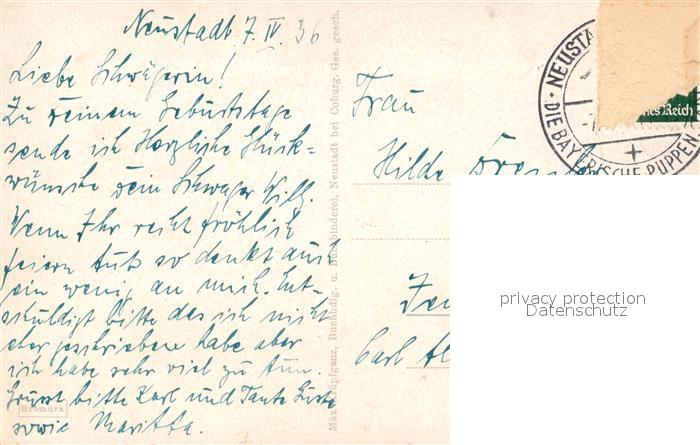 Neustadt 7. IV. 36
Liebe Schwägerin!
Zu Deinem Geburtstage
sende ich Herzliche Glück-
wünsche Dein Schwager Willy.
Wenn Ihr recht fröhlich
feiern tuts so denkt auch
ein wenig an mich. Ent-
schuldigt bitte das ich nicht
eher geschrieben habe aber
ich habe sehr viel zu tun.
Grüsst bitte Karl und Tante
sowie Maritta.
Bromüra
Buchhdlg. u. Buchbinderei, Neustadt bei Coburg. Ges. gesch.
Frau
Hilde
Carl
NEUSTA
DIE BAYERISCHE PUPPEN
hes Reich
privacy protection
Datenschutz